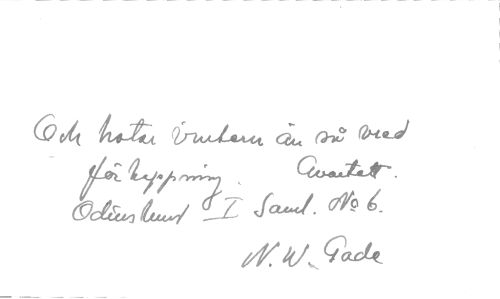 Och hotar vintern än så vred
förkoppning. Qvartett.
Odinslund I Saml. No 6.
N. W. Gade